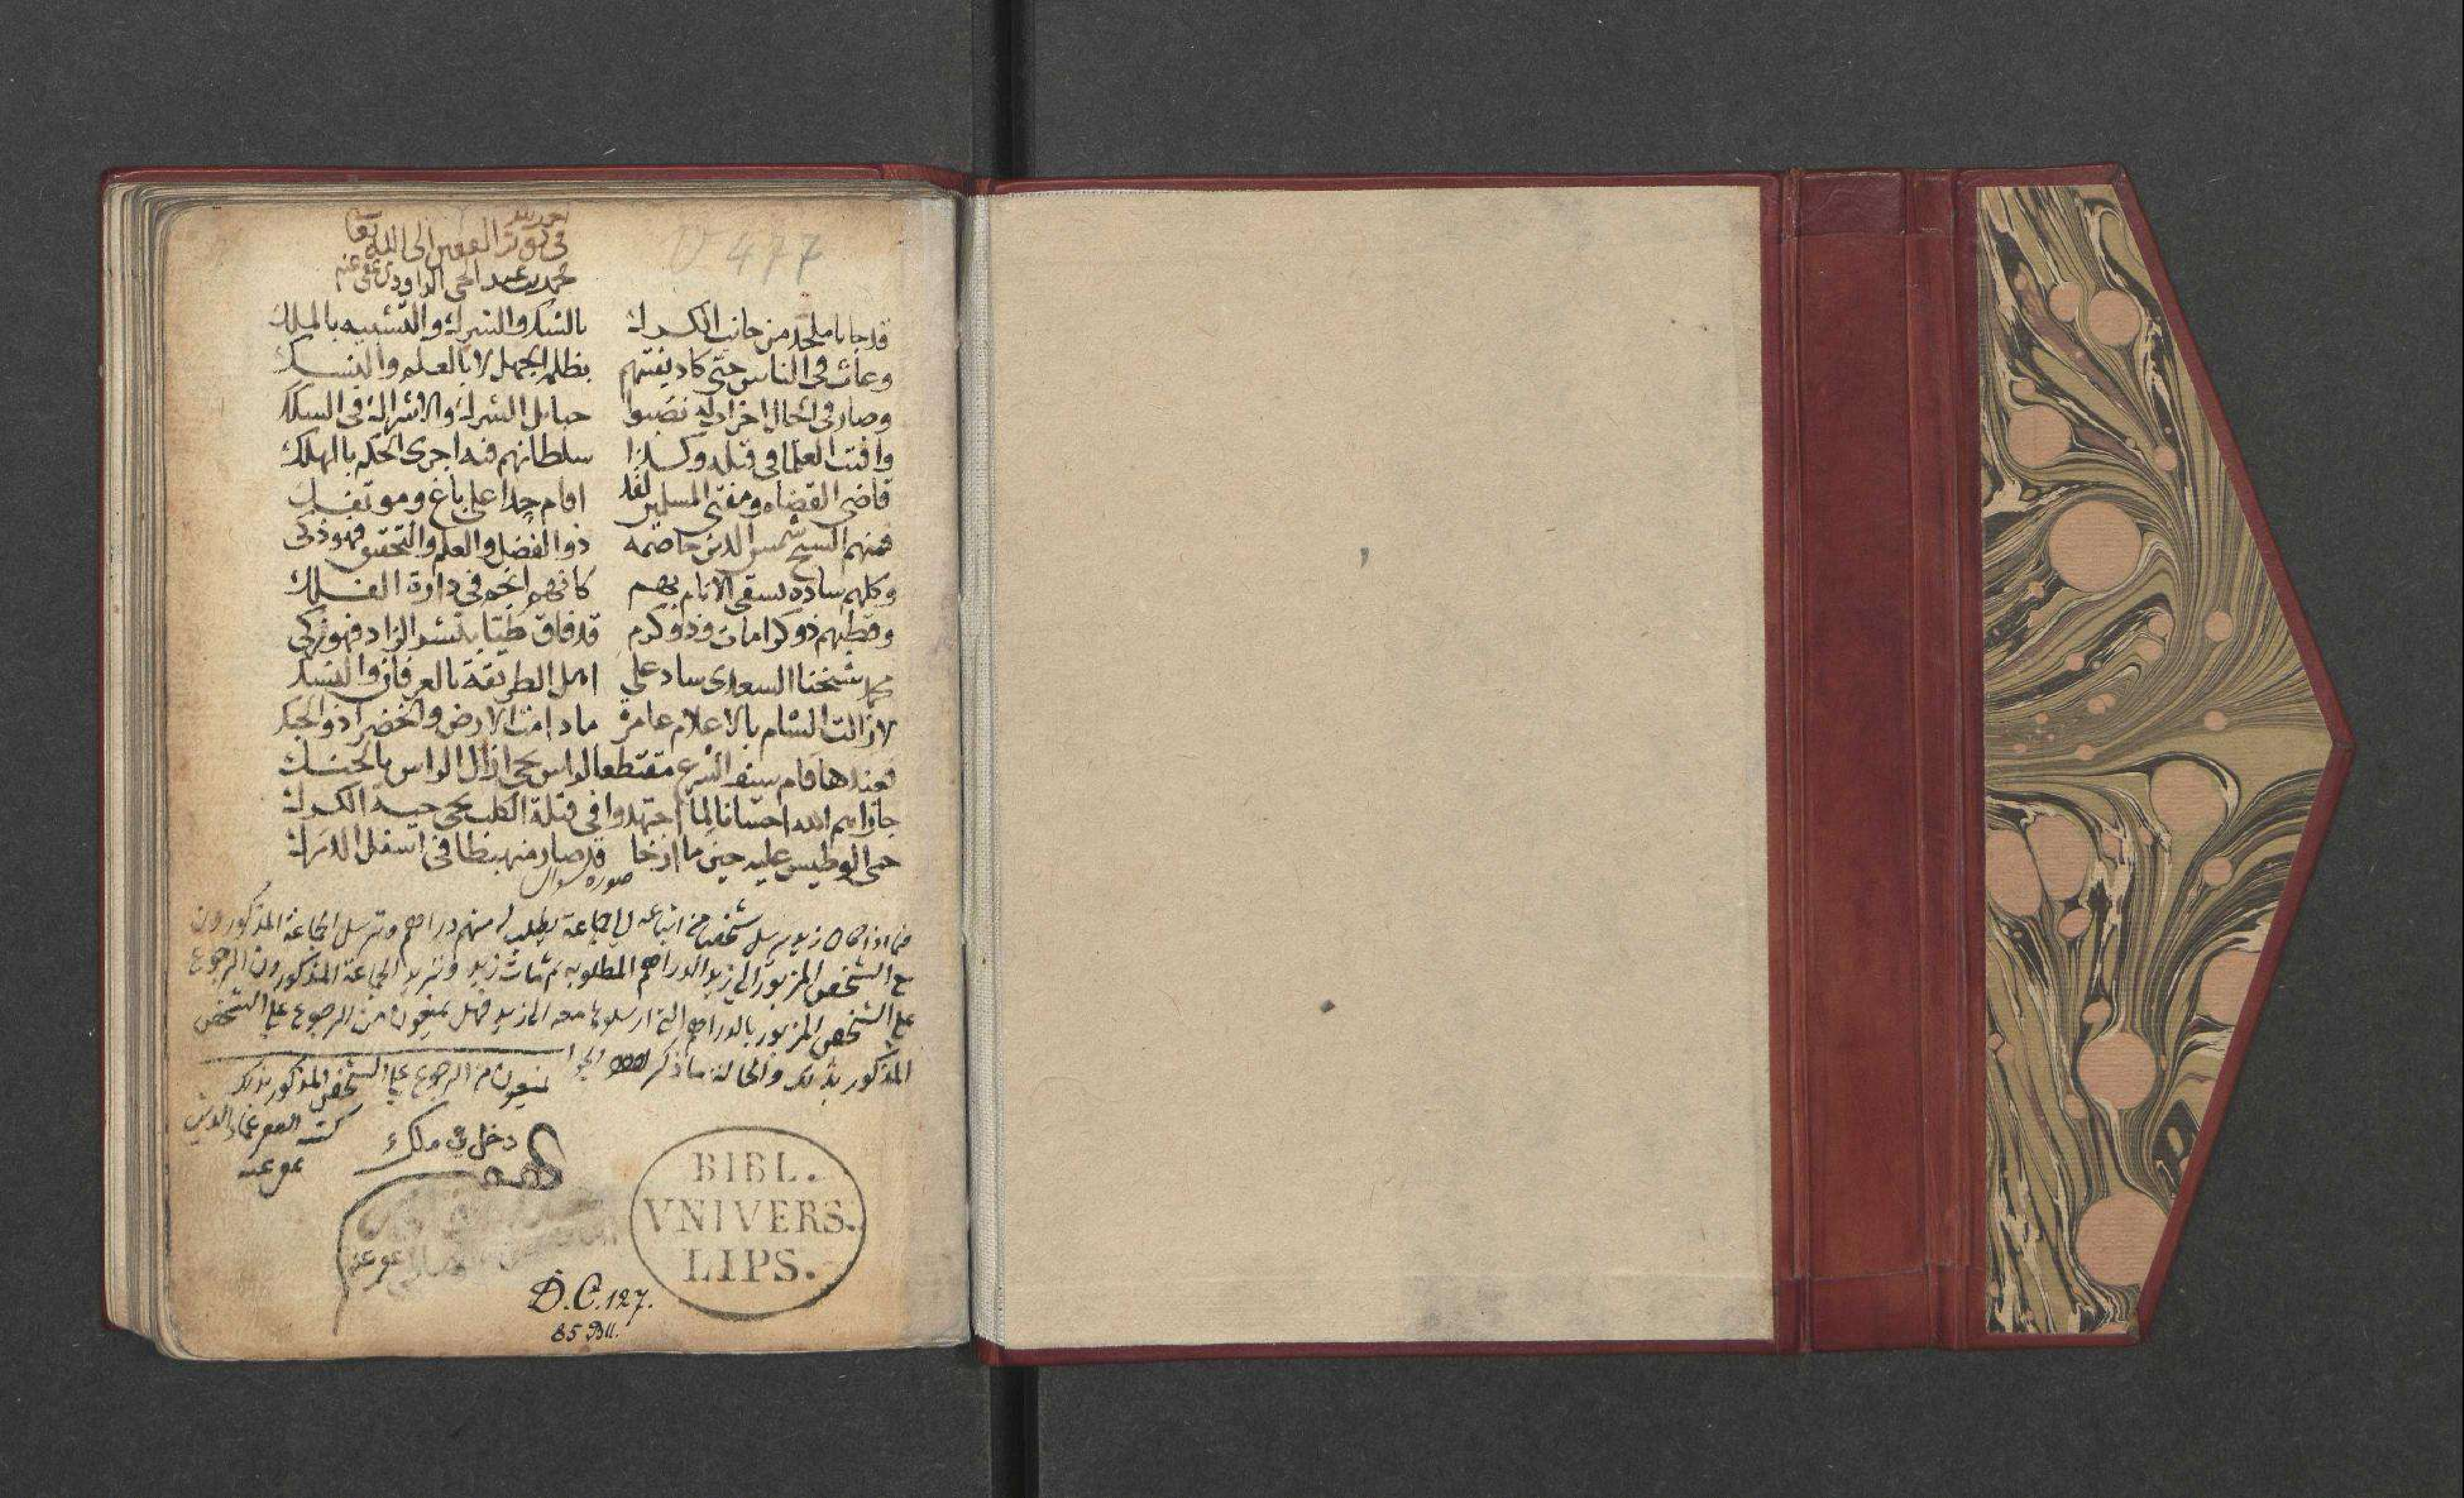 الحمد لله
في نوبة الفقير الى الله تعا
محمد بن عبد الحي الداودي عفي عنه
V 477
قد جانا ملحد من جانب الكرك بالشك والشرك والتشبيه بالملك
وعاث في الناس حتى كاد يفتنهم بظلمه الجهل لا بالعلم والنسك
وصار في الحال افراد له نصبوا حبايل الشرك والاشراك في السكك
وافتت العلما في قتله وكذا سلطانهم فيه اجرى الحكم بالهلك
قاضي القضاه ومفتي المسلمين لقد اقام حدا على باغ ومؤتفك
فمنهم الشيخ شمس الدين خاصمه ذو الفضل والعلم والتحقيق فهو ذكي
وكلهم ساده يسقى الانام بهم كانهم انجم في دارة الفلك
وقطبهم ذو كرامات وذو كرم قد فاق طيبا بنشر الزاد فهو زكي
محمد شيخنا السعدي ساد على اهل الطريقة بالعرفان والنسك
لا زالت الشام بالاعلام عامرة ما دامت الارض والخضرا ذو الحبك
فعندها قام سيف الشرع مقتطعا لراس يحيى ازال الراس بالحنك
جازاهم الله احسانا لما اجتهدوا في قتلة الكلب يحيى حية الكرك
حمى الوطيس عليه حين ما ارخا قد صار منهبطا في اسفل الدرك
صورة سوال
فيما اذا كان زيد يرسل شخصا من اتباعه الى جماعة يطلب له منهم دراهم وترسل الجماعة المذكورون
مع الشخص المزبور الى زيد الدراهم المطلوبه ثم مات زيد وتريد الجماعة المذكورون الرجوع
على الشخص المزبور بالدراهم التي ارسلوها معه الى زيد فهل يمنعون من الرجوع على الشخص
المذكور بذلك والحالة ما ذكر الجوا
يمنعون من الرجوع على الشخص المذكور بذلك
كتبه الفقير عماد الدين
عفي عنه
دخل في ملك
عفي عنه
BIBL.
VNIVERS.
LIPS.
D.C.127.
85 Bll.